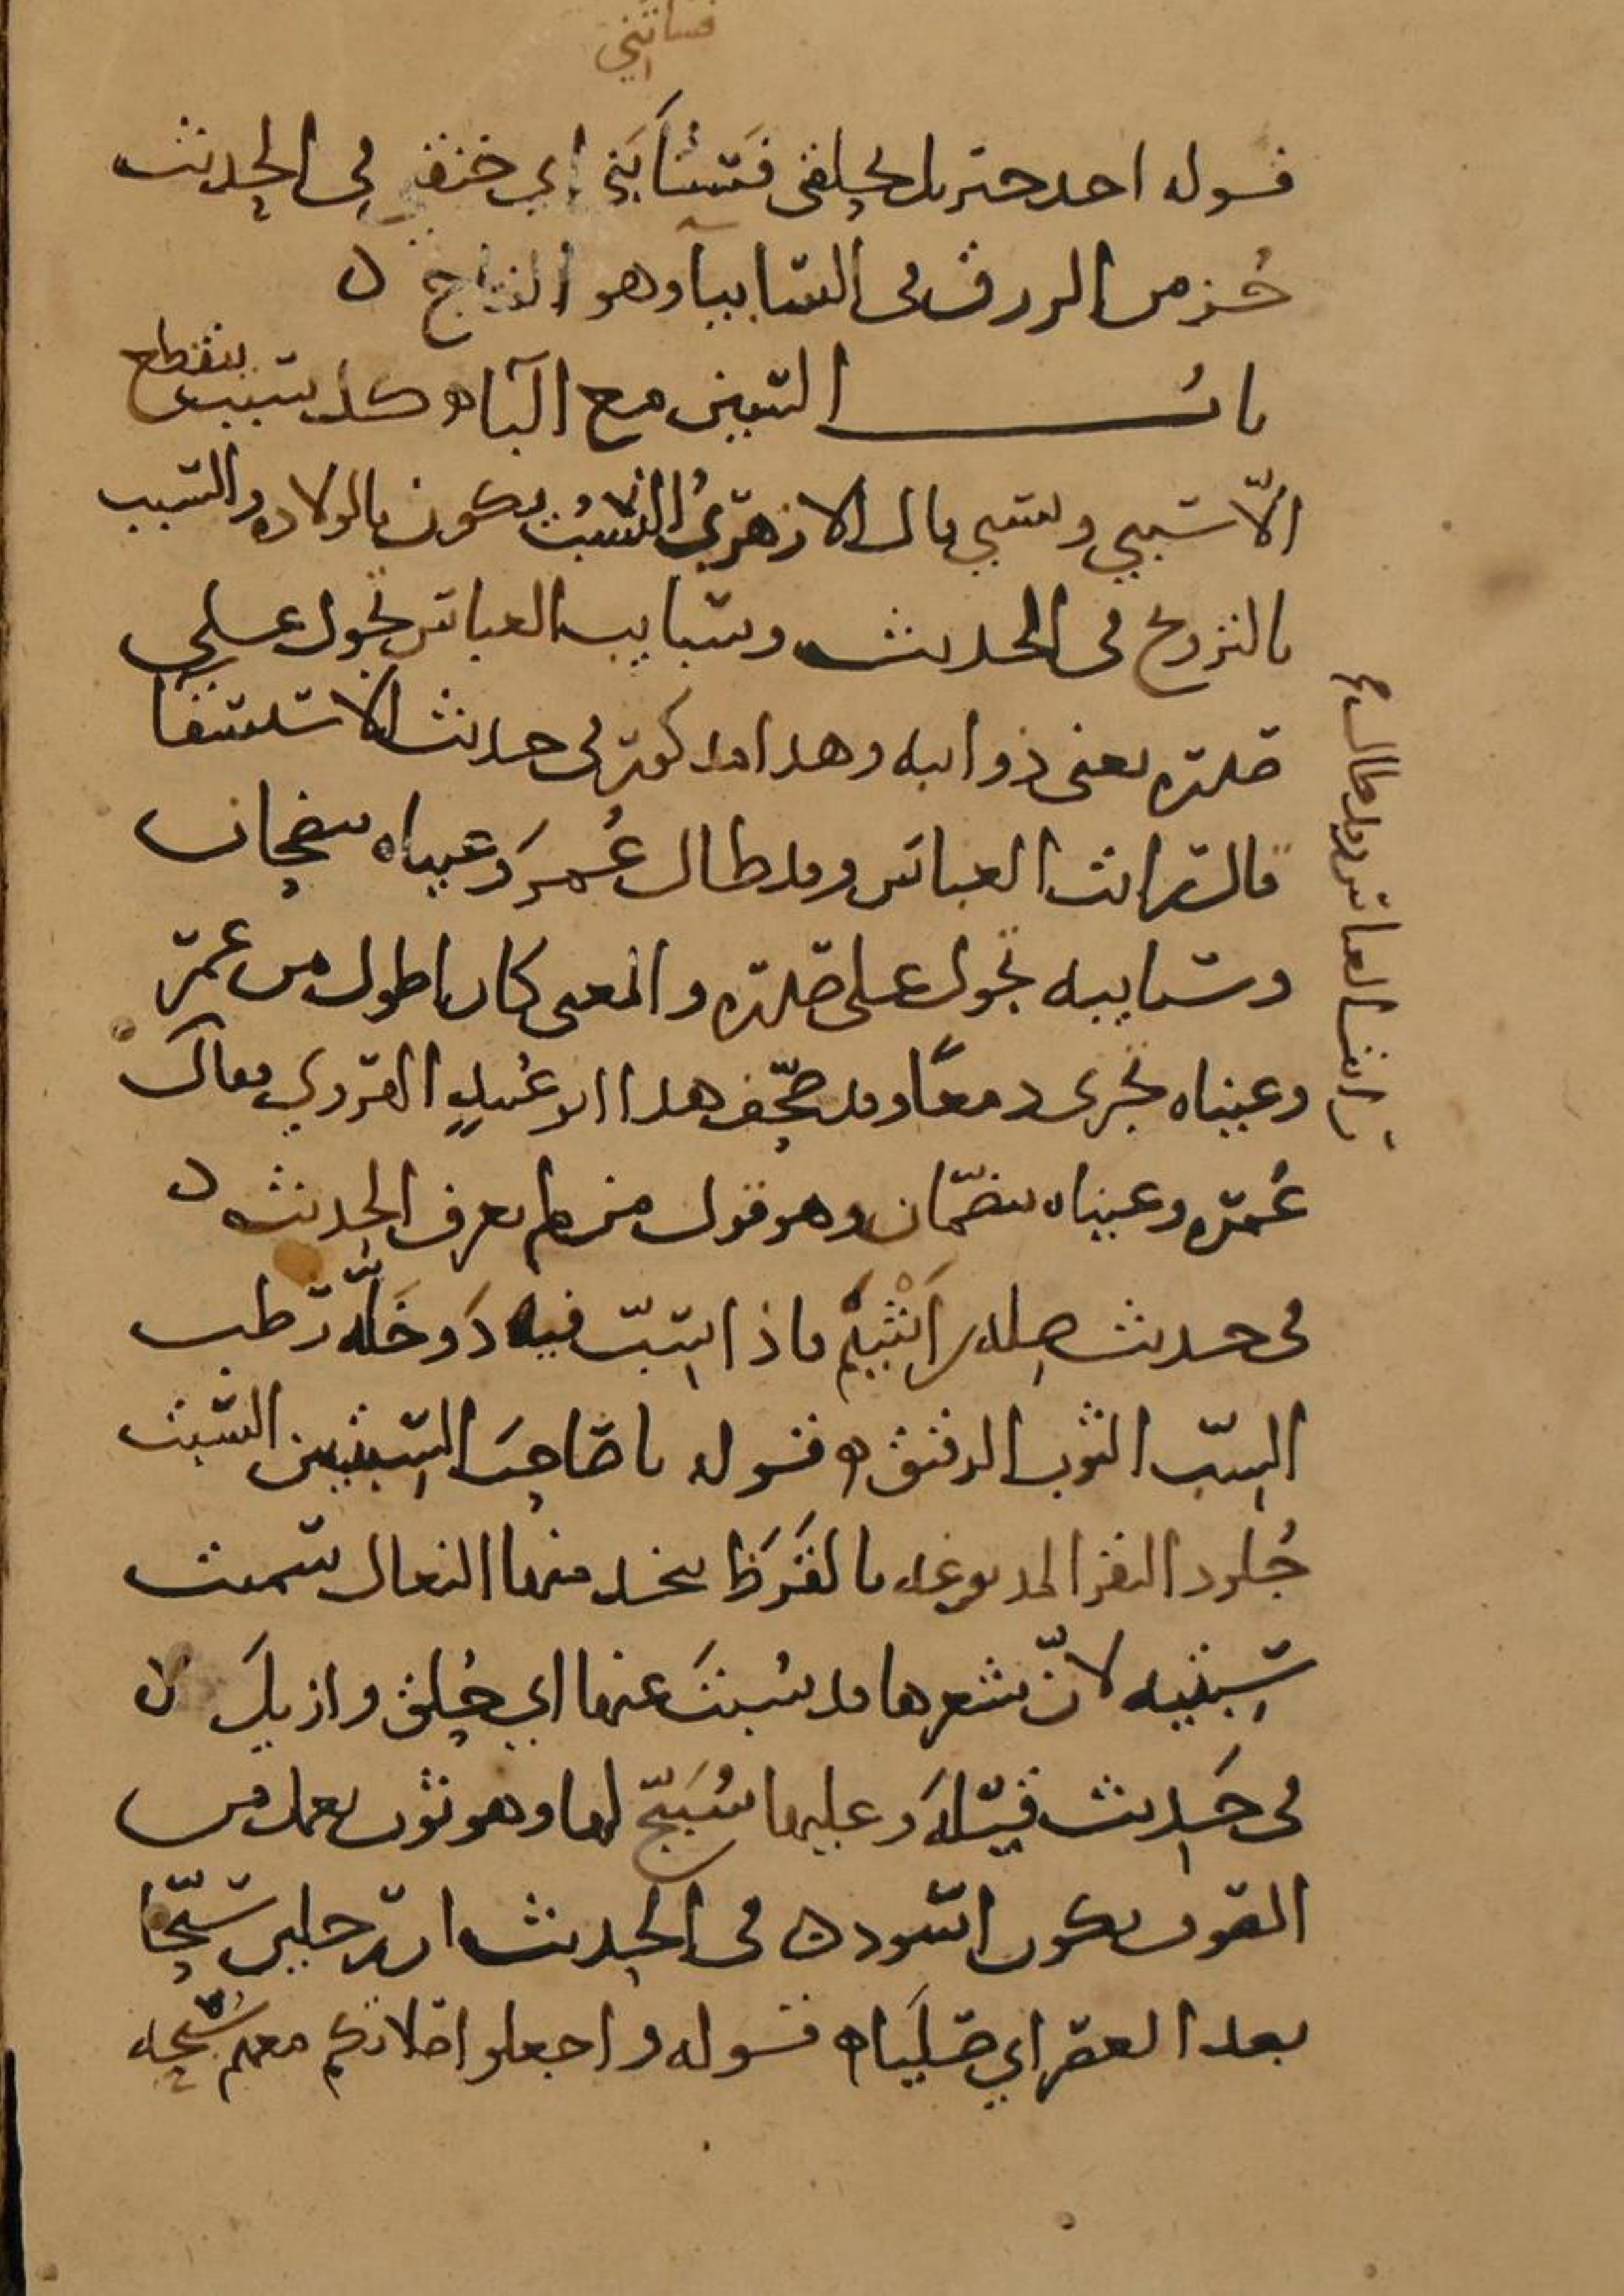 فسأبني
قوله اخذ جبريل بحلقي فسأبني اي خنقني في الحديث
جزء من الرزق في السابياء وهو النتاج ه
باب السين مع الباء ه كل سبب ينقطع
الا سببي ونسبي قال الازهري النسب يكون بالولادة والسبب
بالتزويج في الحديث وسبايب العباس تجول على
صدره يعني ذوائبه وهذا مذكور في حديث الاستسقاء
قال رأيت العباس وقد طال عمر وعيناه تنضخان
وسبايبه تجول على صدره والمعنى كان اطول من عمر
وعيناه تجري دمعا وقد صحف هذا ابو عبيد الهروي فقال
عمره وعيناه تنضمان وهو قول من لم يعرف الحديث ه
في حديث صلة بن اشيم فاذا سب فيه دوخلة رطب
السب الثوب الرقيق ه قوله يا صاحب السبتين السبت
جلود البقر المدبوغة بالقرظ يتخذ منها النعال سميت
سبتية لان شعرها قد سبت عنها اي حلق وازيل ه
في حديث قيلة وعليها سبيج لها وهو ثوب يعمل من
الصوف يكون اسود ه في الحديث ان رجلين سبحا
بعد العصر اي صليا ه قوله واجعلوا صلاتكم معهم سبحة
رأيت العباس وقد طال عمر